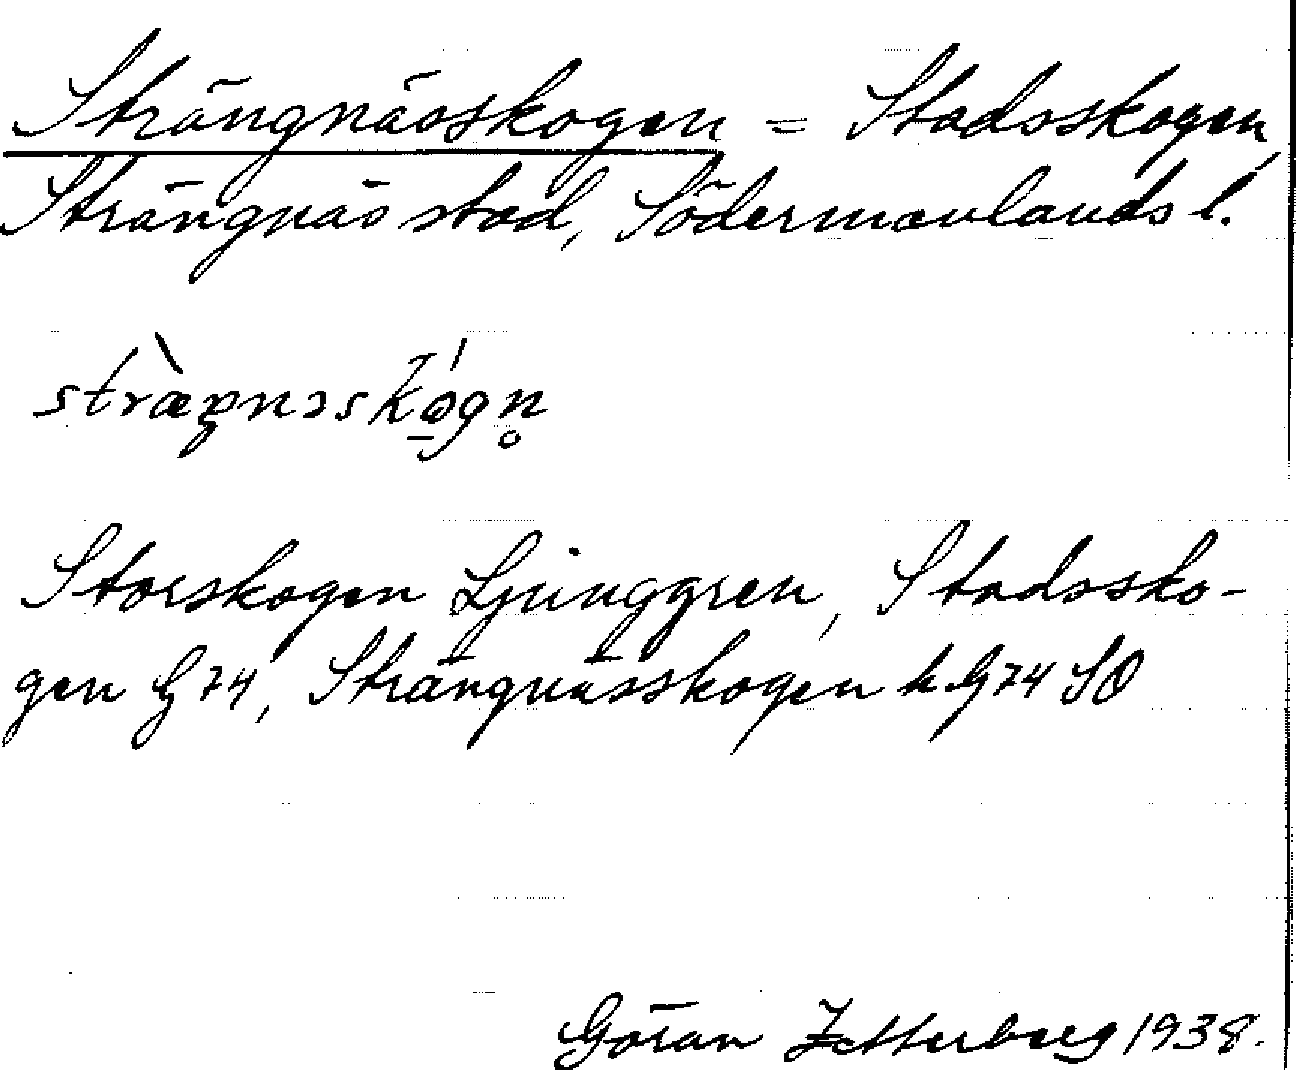 Strängnässkogen = Stadsskogen,
Strängnäs stad, Södermanlands l.
Storskogen Ljunggren, Stadssko-
gen G74, Strängnässkogen h. G74 SO
Göran Zetterberg 1938.